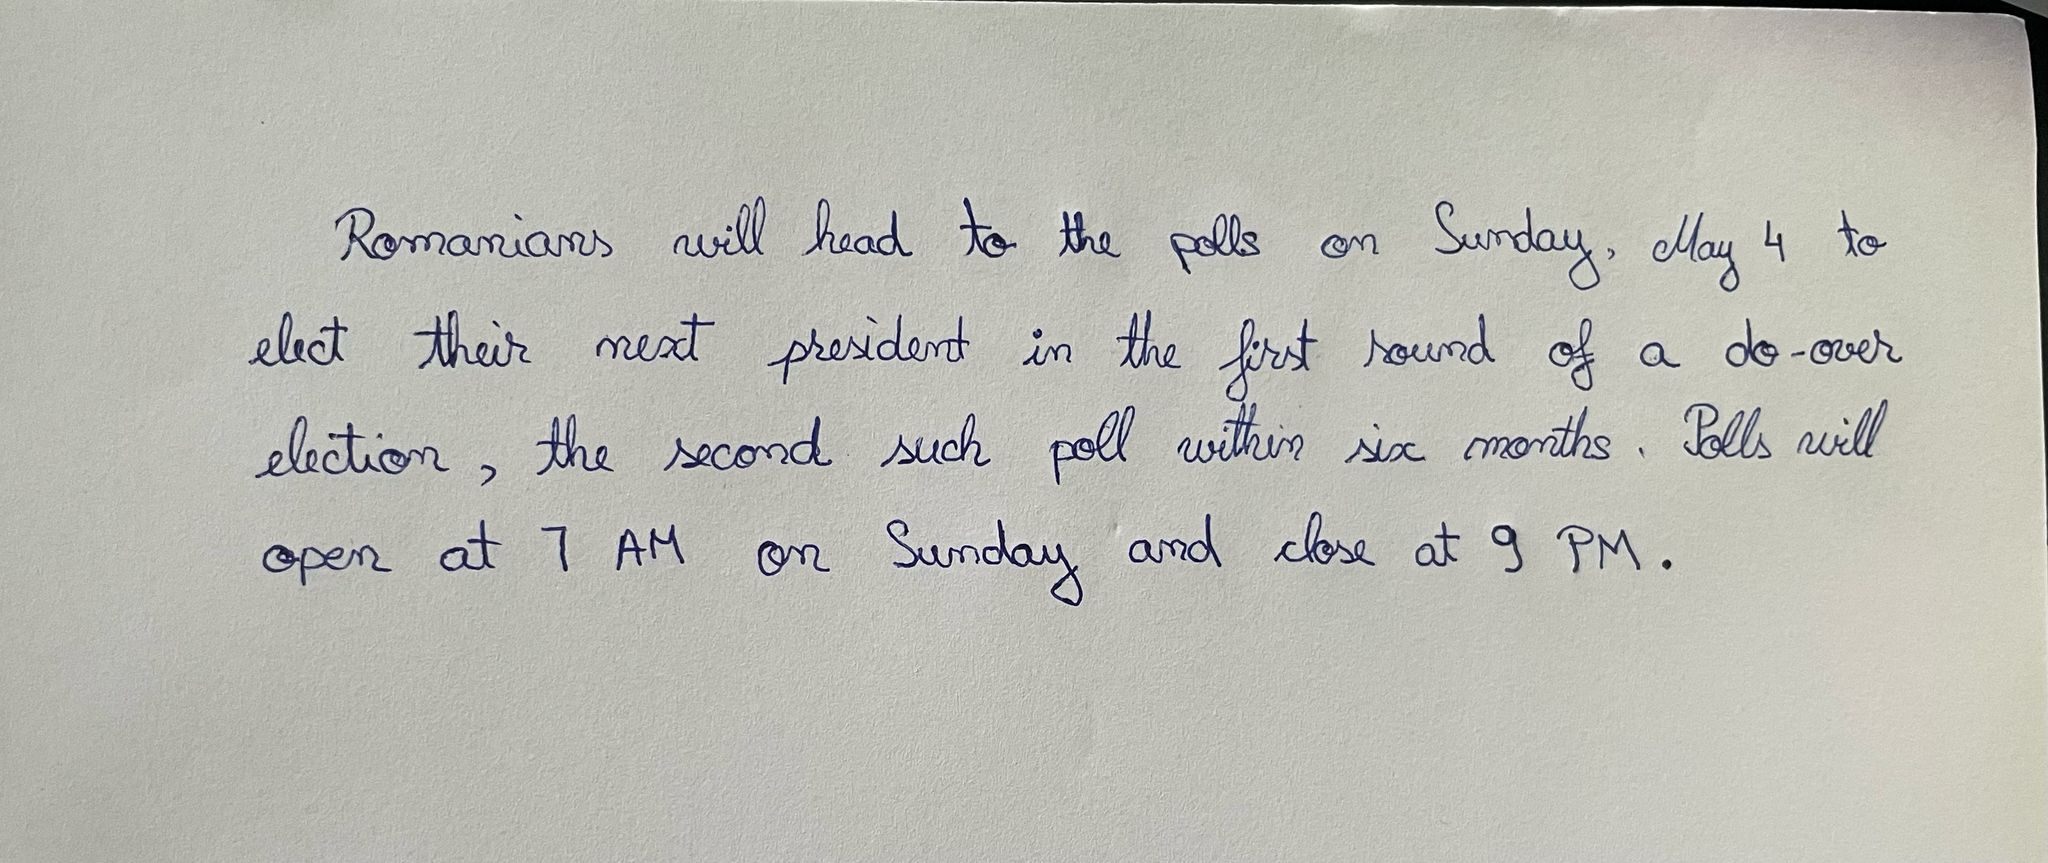 Romanians will head to the polls on Sunday, May 4 to
elect their next president in the first round of a do-over
election, the second such poll within six months. Polls will
open at 7 AM on Sunday and close at 9 PM.